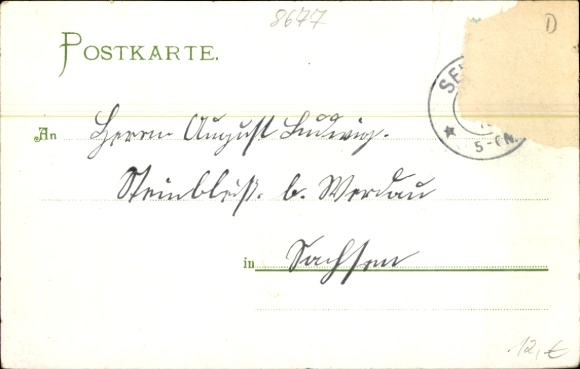 8677
D
POSTKARTE.
SE
5-6N.
An Herrn August Ludwig.
b. Werdau
in Sachsen
12,€